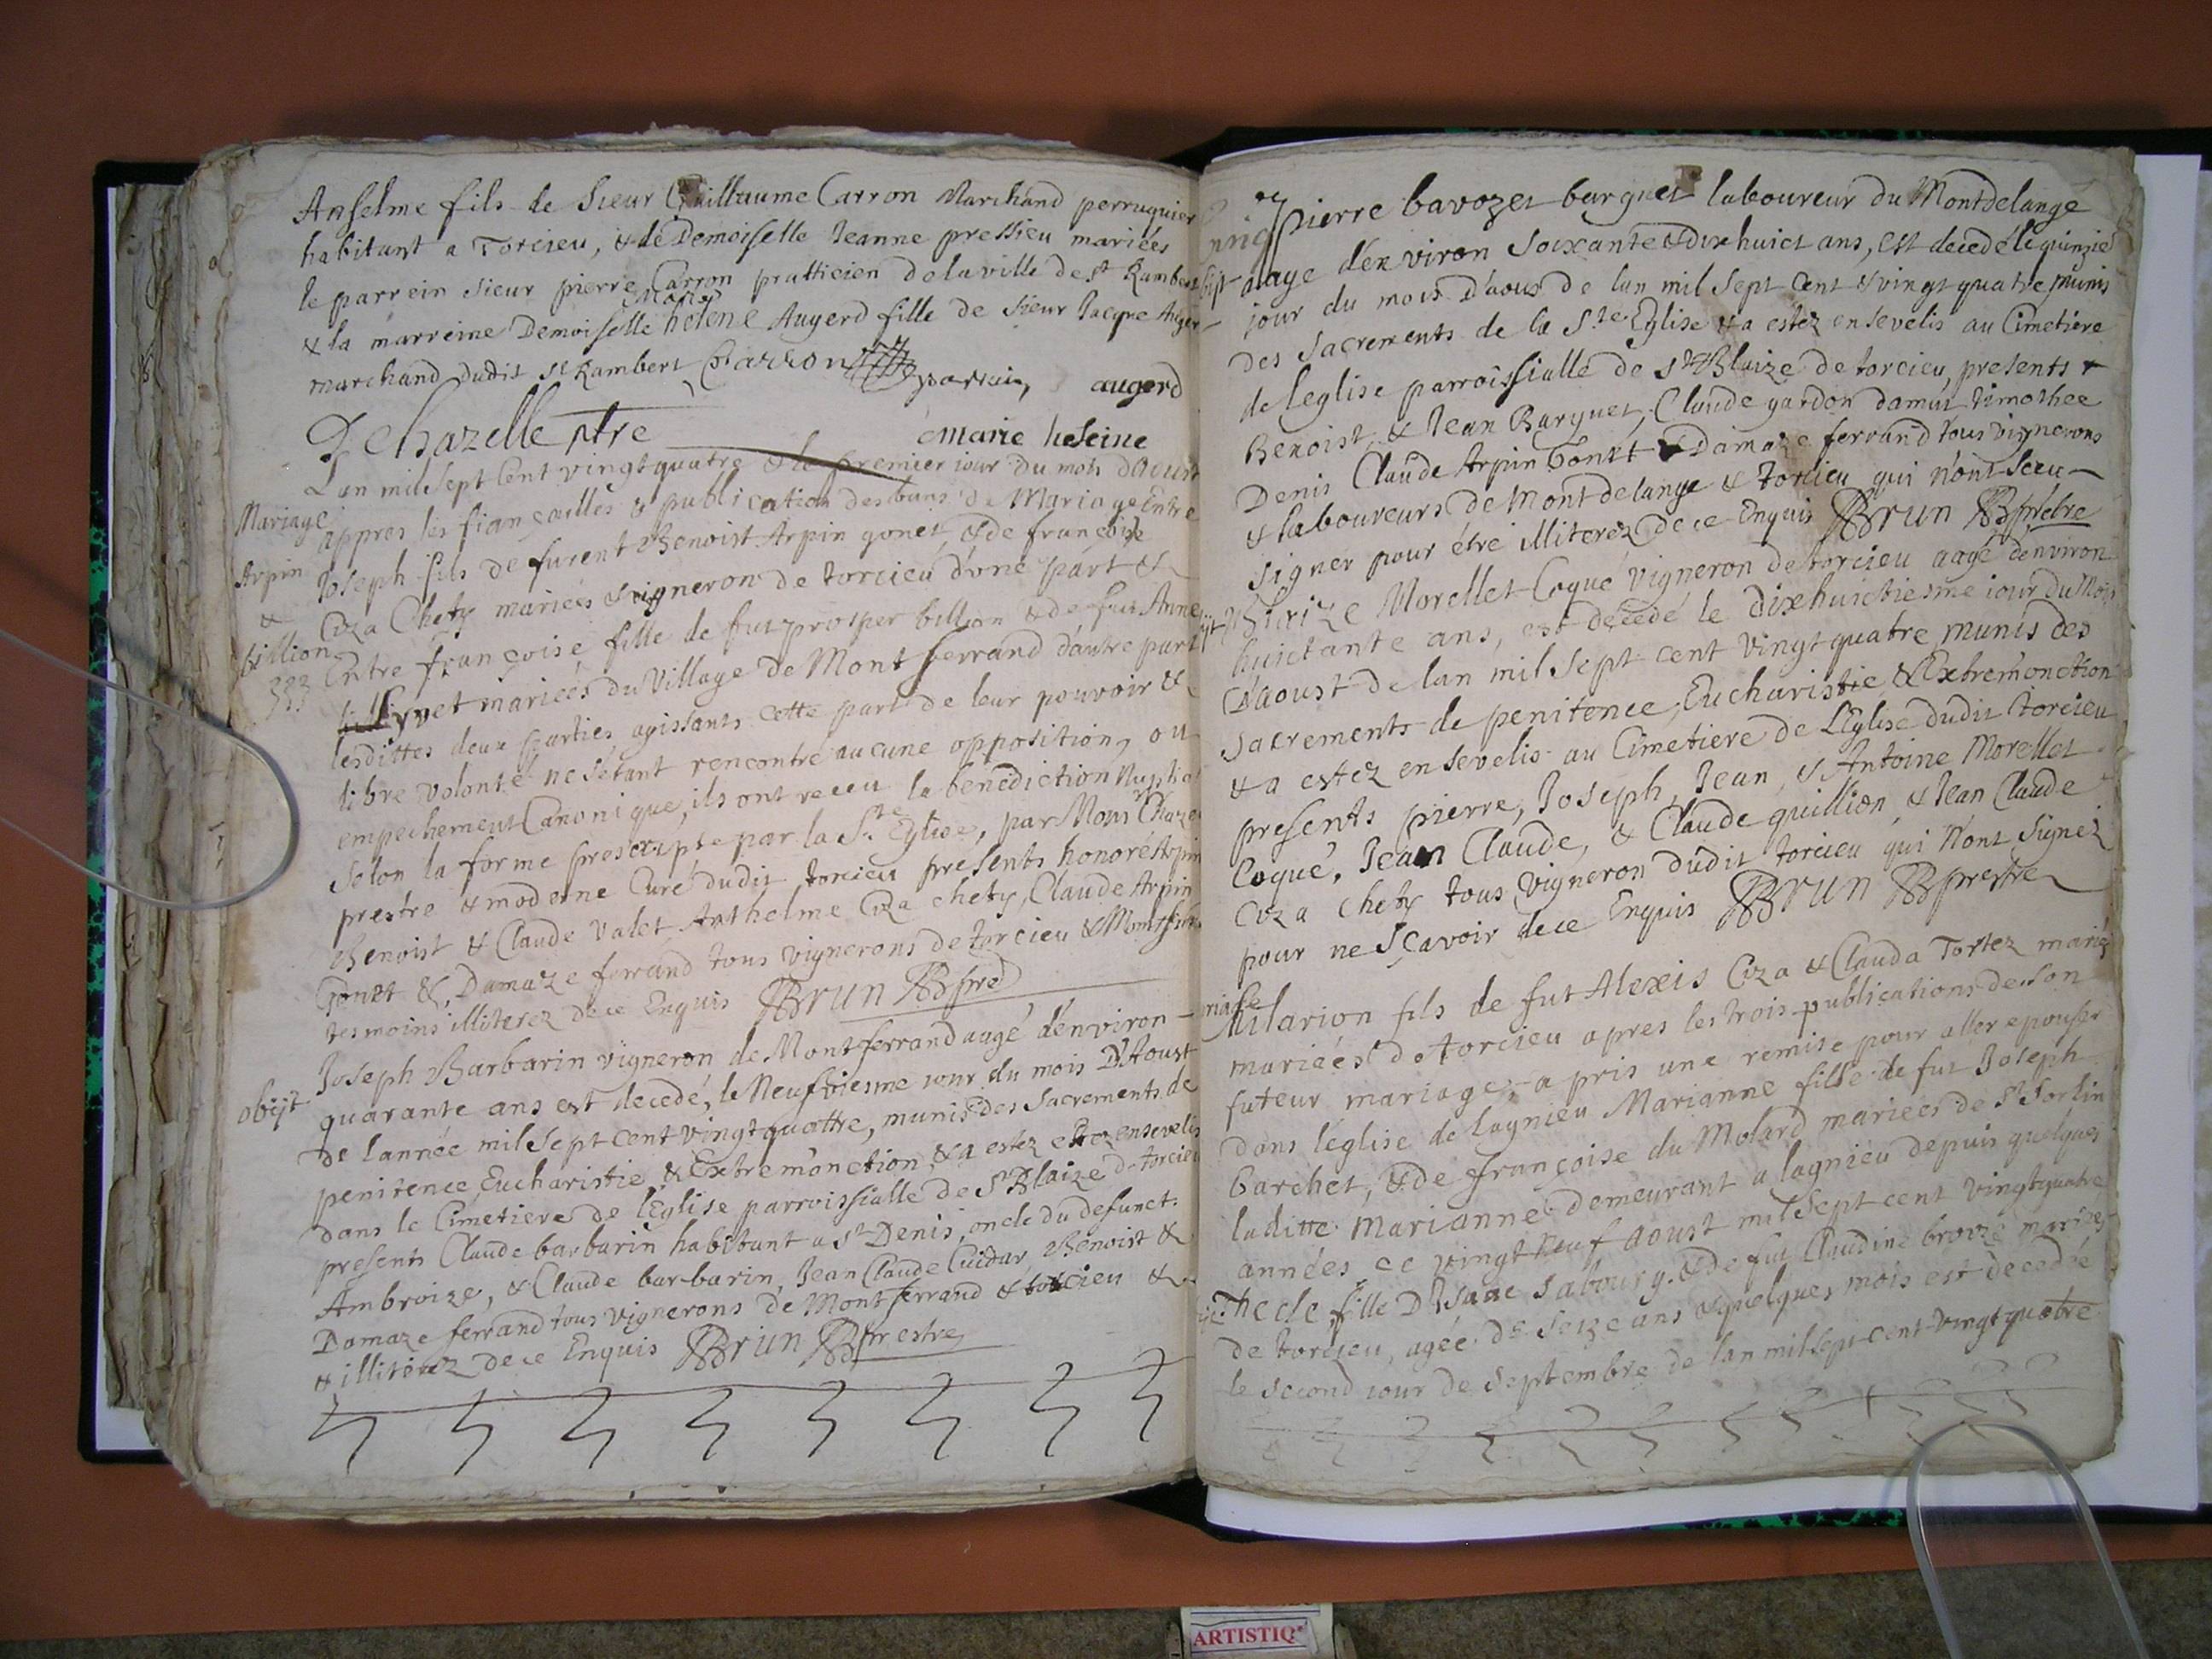 Anselme fils de Sieur Guillaume Carron Marchand perruquier
habitant a Torcieu, & de Demoiselle Jeanne pressieu mariées
le parrein sieur pierre Carron pratticien de la ville de St Rambert
& la marreine Demoiselle marie helene Augerd fille de sieur Jacque Auger
marchand dudit St Rambert Carron parrain, augerd
Dechazelle ptre marie heleine
Lan mil sept Cent vingt quatre & le premier iour du mois daoust
Mariage appres les fiançailles & publication des bans de Mariage Entre
Arpin Joseph fils de furent Benoist Arpin gonet, & de françoise
& Ciza Chety mariées vigneron de torcieu d'une part &
billion Entre françoise fille de fut prosper billion & de fut Anne
mariées du Village de Mont ferrand d'autre part
lesdittes deux parties agissants cette part de leur pouvoir &
libre volonté ne sétant rencontré aucune opposition, ou
empechement Canonique, ils ont receu la benediction Nuptial
selon la forme prescripte par la Ste Eglise, par Monsr Chaze
prestre & moderne Curé dudit torcieu presents honoré Arpin
Benoist & Claude Valet Anthelme Ciza chety, Claude Arpin
Gonet & Damaze ferrand tous vignerons de torcieu & Montferra
tesmoins illiterez de ce Enquis Brun pre
Joseph Barbarin vigneron de Montferrand aagé denviron
obijt quarante ans est decedé, le Neufviesme iour du mois D'Aoust
de lannée mil sept cent vingt quattre, munis des Sacrements de
penitence, Eucharistie, & Extremonction, & a estez ensevelis
dans le Cimetiere de leglise parroissialle de St Blaize de torcieu
presents Claude barbarin habitant a St Denis, oncle du defunct.
Ambroize, & Claude barbarin, Jean Claude Cuidar, Benoist &
Damaze ferrand tous vignerons de Montferrand & torcieu &
& illiterez de ce Enquis Brun prestre
pierre bavozet barguet laboureur du Montdelange
aage denviron soixante & dix huict ans, est decedé le quinzie
jour du mois D'aoust de lan mil sept Cent & vingt quatre munis
des Sacrements de la Ste Eglise & a estez ensevelis au Cimetiere
de leglise parroissialle de St Blaize de torcieu, presents
Benoist, & Jean Barguet, Claude gardon damus, timothee
Denis Claude Arpin Gonet & Damaze ferrand tous vignerons
& laboureurs de Montdelange & torcieu qui n'ont sceu
signer pour étre illiterez de ce Enquis Brun prebre
Morellet Coqué vigneron de torcieu aagé denviron
huictante ans, est decedé le dixhuictiesme iour du Mois
D'aoust de lan mil sept cent vingt quatre, munis des
Sacrements de penitence, Eucharistie & Extremonction
& a estez ensevelis au Cimetiere de LEglise dudit torcieu
presents pierre, Joseph, Jean, & Antoine Morellet
Coqué, Jean Claude, & Claude quillion, & Jean Claude
Ciza chety tous vigneron dudit torcieu qui n'ont signez
pour ne Sçavoir de ce Enquis Brun prestre
hilarion fils de fut Alexis Ciza & Clauda Tortez mariez
mariées de torcieu apres les trois publications de son
futeur mariage, a pris une remise pour aller epouser
dans léglise de lagnieu Marianne fille de fut Joseph
barchet, & de françoise du Molard mariées de St Sorlin
laditte Marianne demeurant a lagnieu depuis quelques
années ce vingt neuf aoust mil sept cent vingtquatre
Thecle fille D'Isaac Sabourg & de fut Claudine broze mariées
de torcieu, agée de seize ans & quelques mois est decedée
le second iour de septembre de lan mil sept cent vingt quatre
ARTISTIQ